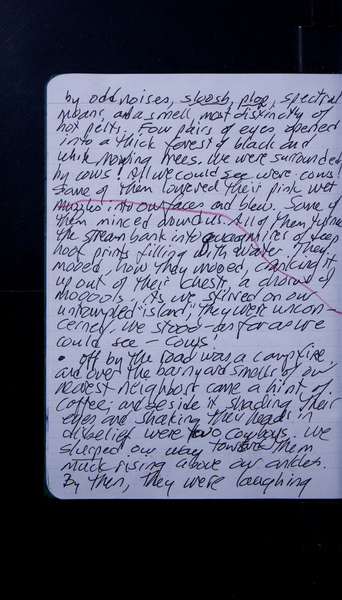 by odd noises, sloosh, plop, spectral
moans, and a smell, most distinctly of
hot pelts. Four pairs of eyes opened
into a thick forest of black and
white moving trees. We were surrounded
by cows! All we could see were cows!
Some of them lowered their pink wet
muzzles into our faces and blew. Some of
them minced around us. All of them turned
the stream bank into quagmires of deep
hoof prints filling with water. They
mooed, how they mooed, dragging it
up out of their chests, a chorus of
mooools. As we stirred on our
untrampled island, they were uncon-
cerned, we stood - as far as we
could see - Cows!
• Off by the road was a campfire,
and over the barnyard smells of our
nearest neighbors came a hint of
coffee, and beside it, shading their
eyes and shaking their heads in
disbelief were two cowboys. We
slurped our way towards them
muck rising above our ankles.
By then, they were laughing